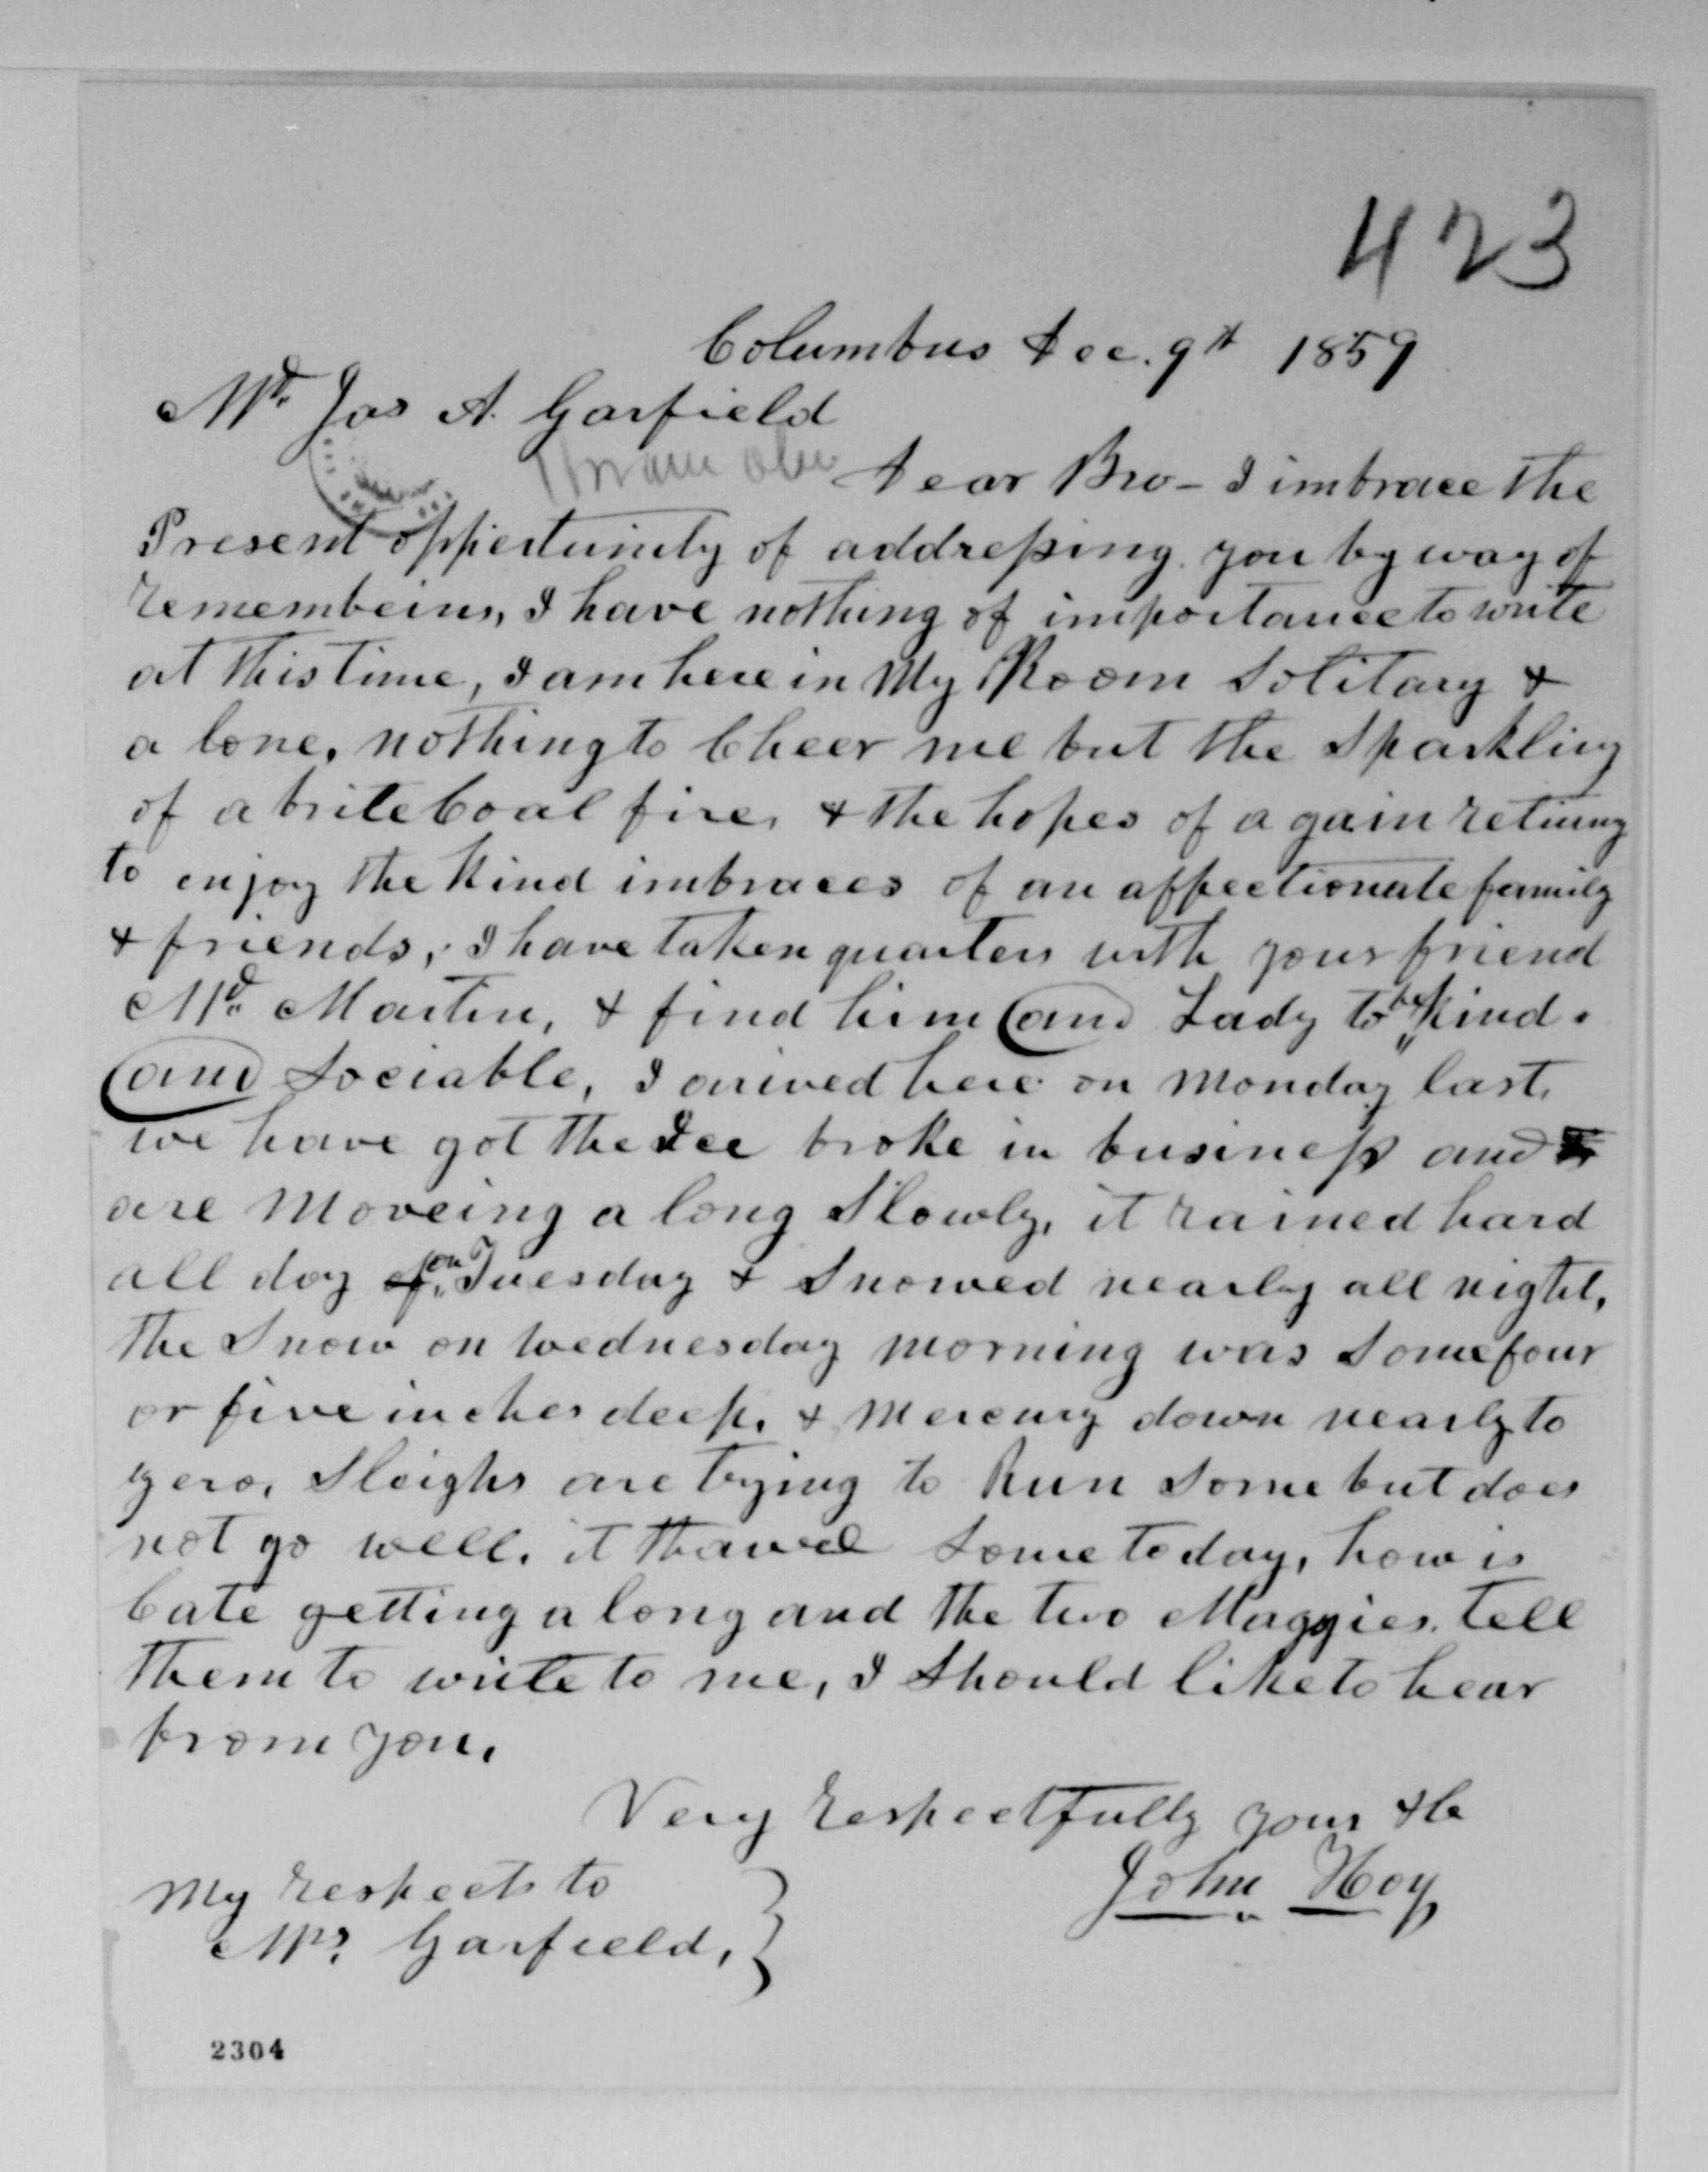 423
Columbus Dec. 9th 1859
Mr. Jas A. Garfield
Dear Bro- I imbrace the
Present oppertunity of addressing you by way of
remembeins, I have nothing of importance to write
at this time, I am here in My Room Solitary &
a lone, nothing to Cheer me but the Sparkling
of a brite Coal fire, & the hopes of a gain retiung
to enjoy the Kind imbraces of an affectionate family
& friends, I have taken quarters with your friend
Mr. Martin, & find him and Lady to be Kind.
and Sociable, I arived here on Monday last.
we have got the Ice broke in business and
are Moveing a long Slowly, it rained hard
all day of on Tuesday & Snowed nearly all night,
the Snow on Wednesday morning was Some four
or five inches deep, & Mercury down nearly to
zero, Sleighs are trying to Run Some but does
not go well, it thawed Some to day, how is
Cate getting a long and the two Maggies. tell
them to write to me, I Should like to hear
from you,
Very respectfully your &c
John Hoy
My respects to
Mrs. Garfield,
2304